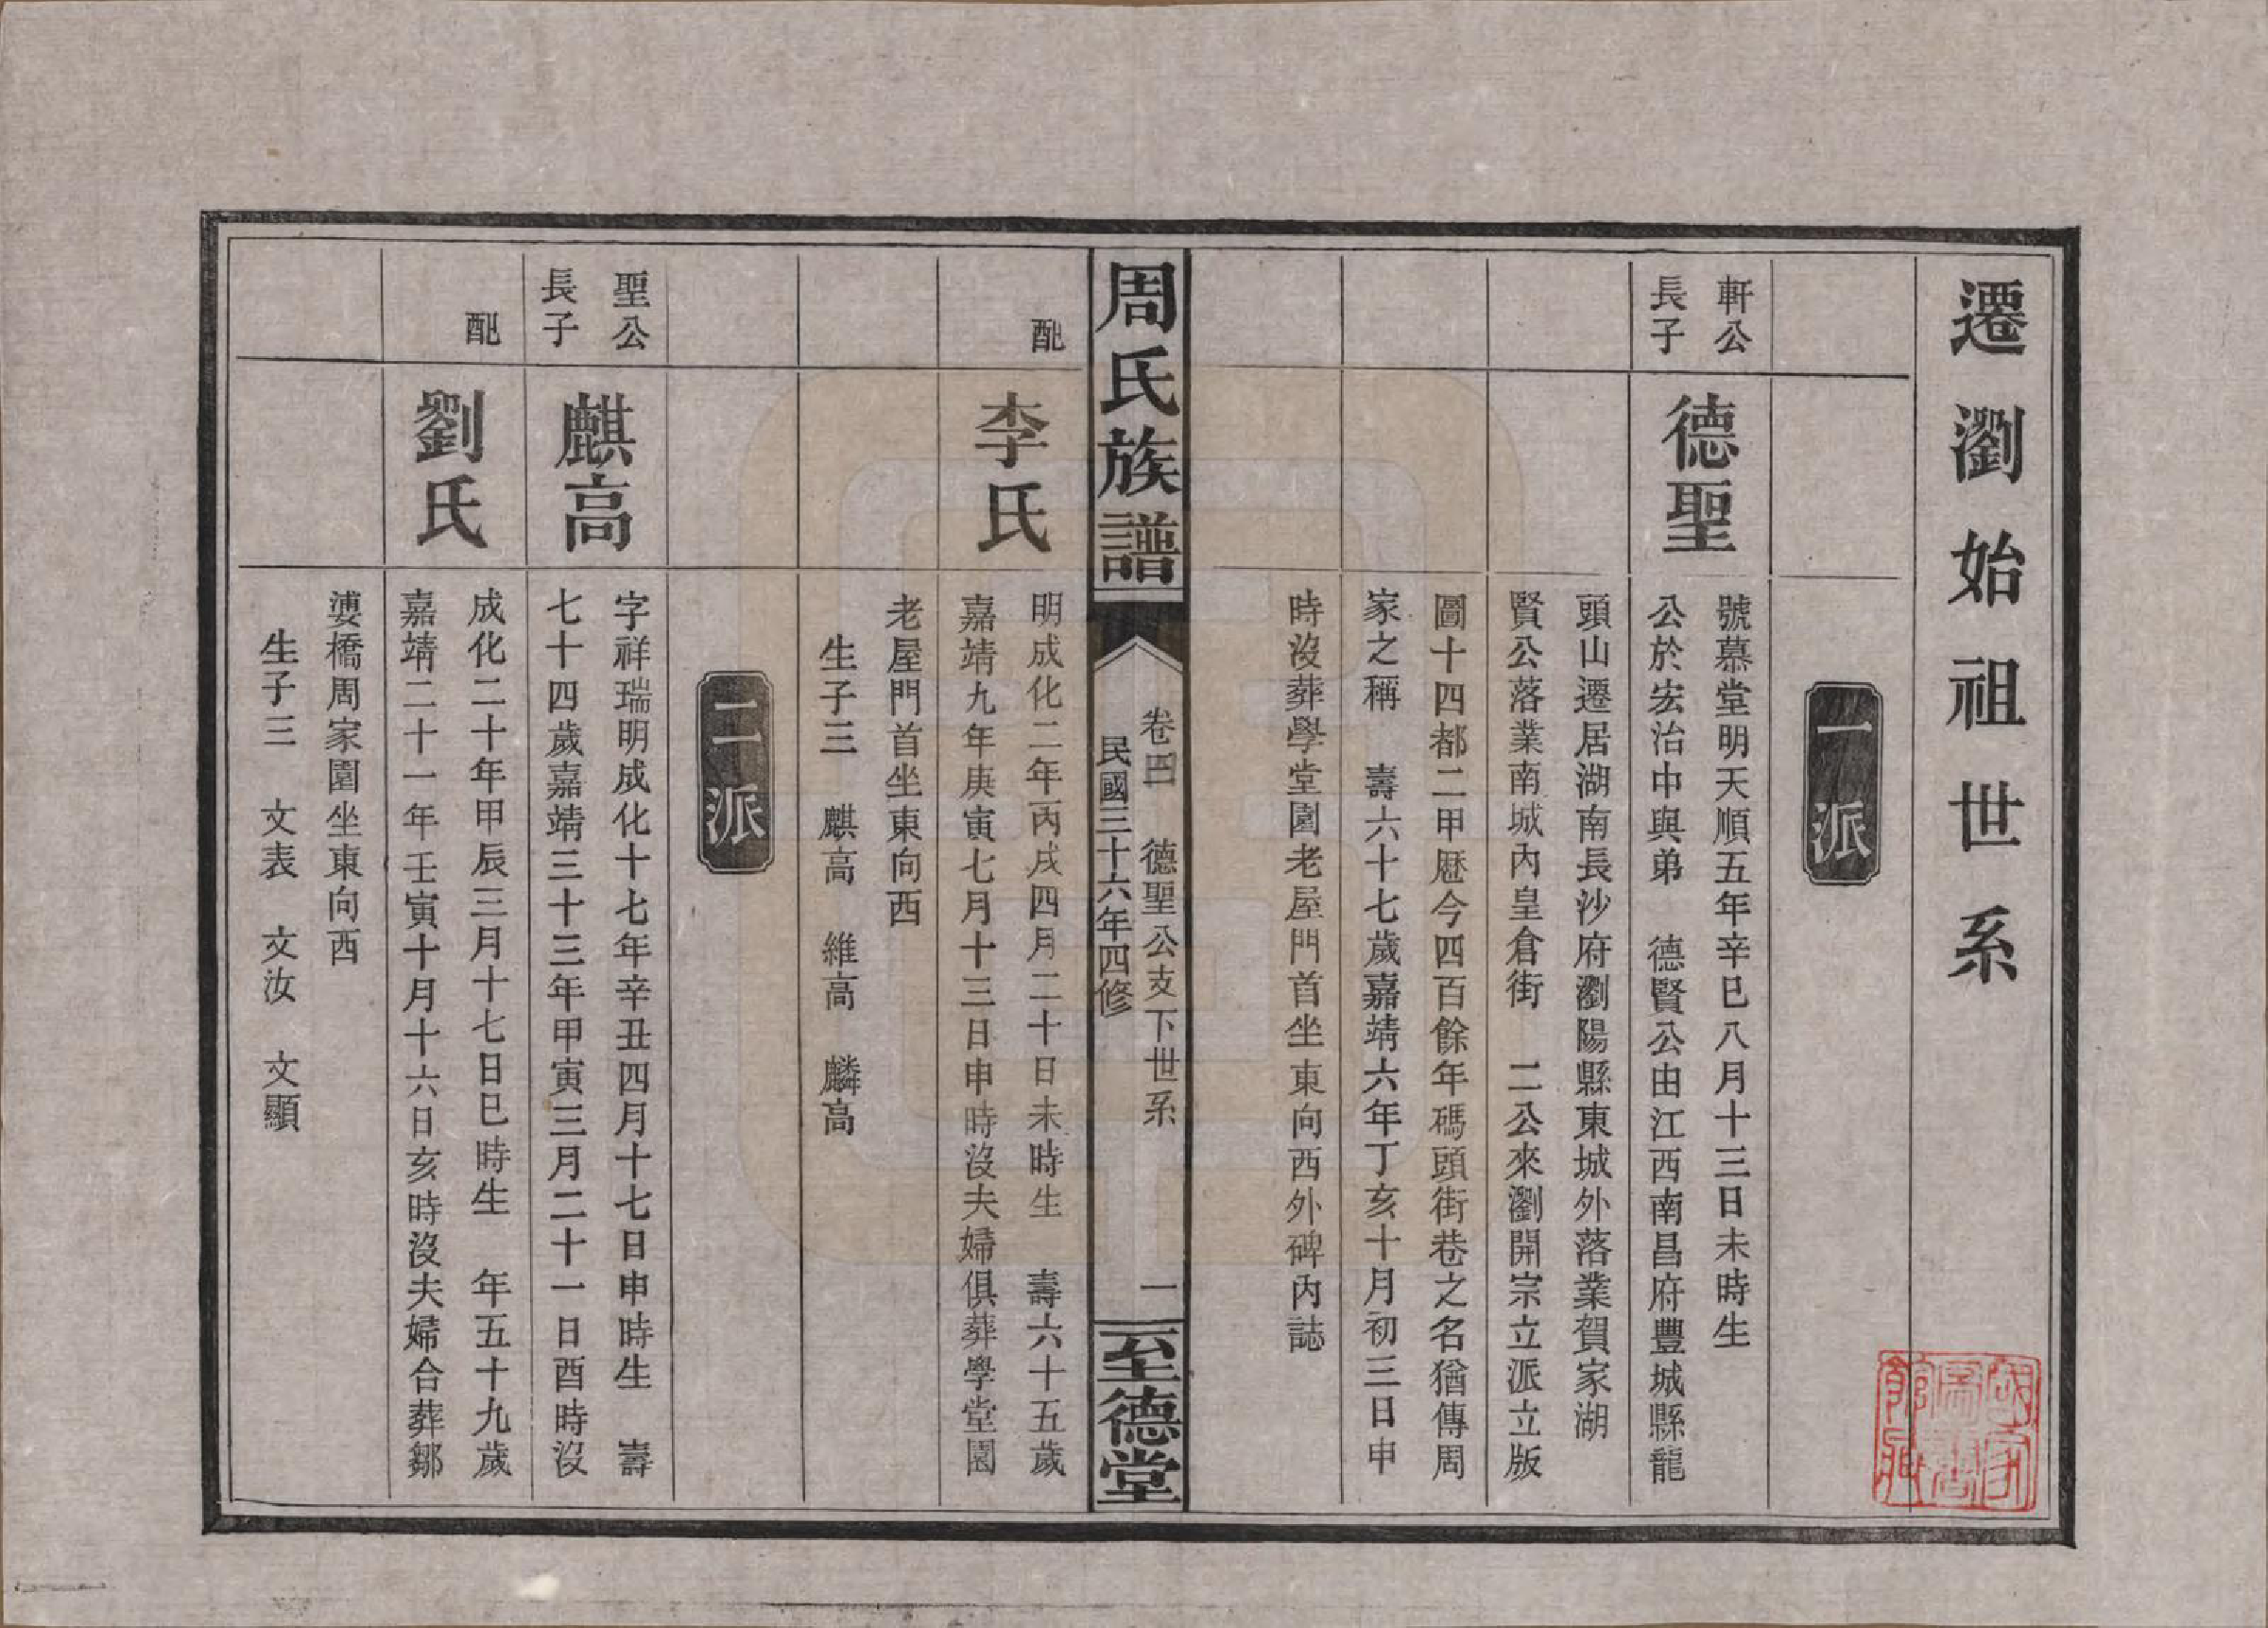 遷瀏始祖世系
一派
軒公
長子
德聖
號慕堂明天順五年辛巳八月十三日未時生
公於宏治中與弟 德賢公由江西南昌府豐城縣龍
頭山遷居湖南長沙府瀏陽縣東城外落業賀家湖
賢公落業南城內皇倉街 二公來瀏開宗立派立版
圖十四都二甲歷今四百餘年碼頭街巷之名猶傳周
家之稱 壽六十七歲嘉靖六年丁亥十月初三日申
時沒葬學堂園老屋門首坐東向西外碑內誌
周氏族譜
卷四 德聖公支下世系 一
民國三十六年四修
至德堂
配
李氏
明成化二年丙戌四月二十日未時生 壽六十五歲
嘉靖九年庚寅七月十三日申時沒夫婦俱葬學堂園
老屋門首坐東向西
生子三 麒高 維高 麟高
二派
聖公
長子
麒高
字祥瑞明成化十七年辛丑四月十七日申時生 壽
七十四歲嘉靖三十三年甲寅三月二十一日酉時沒
配
劉氏
成化二十年甲辰三月十七日巳時生 年五十九歲
嘉靖二十一年壬寅十月十六日亥時沒夫婦合葬鄒
婆橋周家園坐東向西
生子三 文表 文汝 文顯